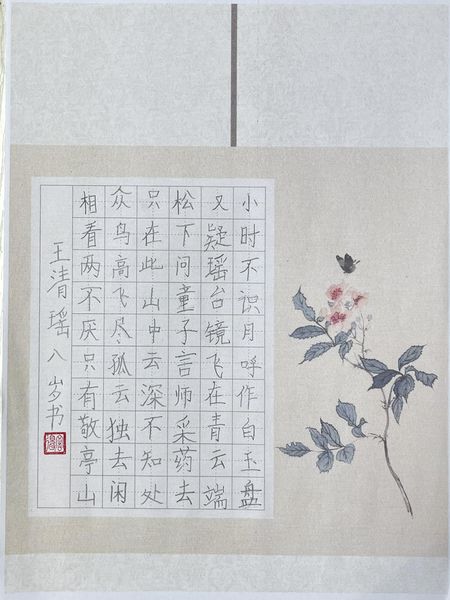 小时不识月呼作白玉盘
又疑瑶台镜飞在青云端
松下问童子言师采药去
只在此山中云深不知处
众鸟高飞尽孤云独去闲
相看两不厌只有敬亭山
王清瑶八岁书